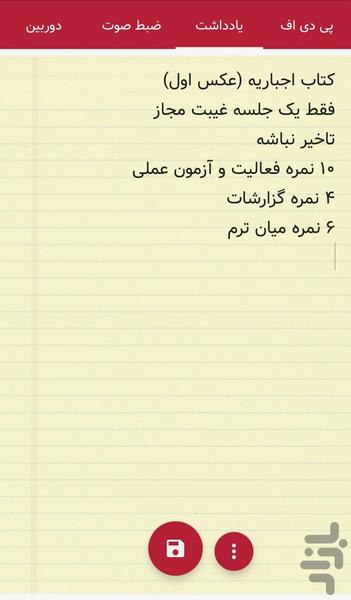 پی دی اف
یادداشت
ضبط صوت
دوربین
کتاب اجباریه (عکس اول)
فقط یک جلسه غیبت مجاز
تاخیر نباشه
۱۰ نمره فعالیت و آزمون عملی
۴ نمره گزارشات
۶ نمره میان ترم
بازار